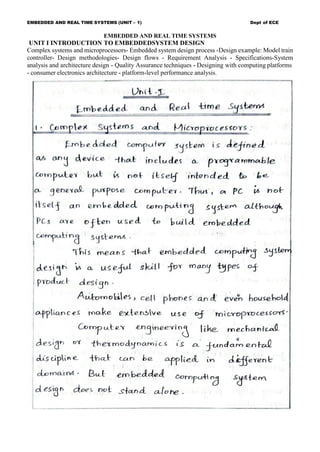 EMBEDDED AND REAL TIME SYSTEMS (UNIT - 1) Dept of ECE
EMBEDDED AND REAL TIME SYSTEMS
UNIT I INTRODUCTION TO EMBEDDEDSYSTEM DESIGN
Complex systems and microprocessors- Embedded system design process -Design example: Model train
controller- Design methodologies- Design flows - Requirement Analysis - Specifications-System
analysis and architecture design - Quality Assurance techniques - Designing with computing platforms
- consumer electronics architecture - platform-level performance analysis.
Unit-I
Embedded and Real time Systems
1. Complex Systems and Microprocessors:
Embedded computer system is defined
as any device that includes a programmable
computer but is not itself intended to be
a general purpose computer. Thus, a PC is not
itself an embedded computing system although
PCs are often used to build embedded
computing systems.
This means that embedded computing system
design is a useful skill for many types of
product design.
Automobiles, cell phones and even household
appliances make extensive use of microprocessors.
Computer engineering like mechanical
design or thermodynamics is a fundamental
discipline that can be applied in different
domains. But embedded computing system
design does not stand alone.